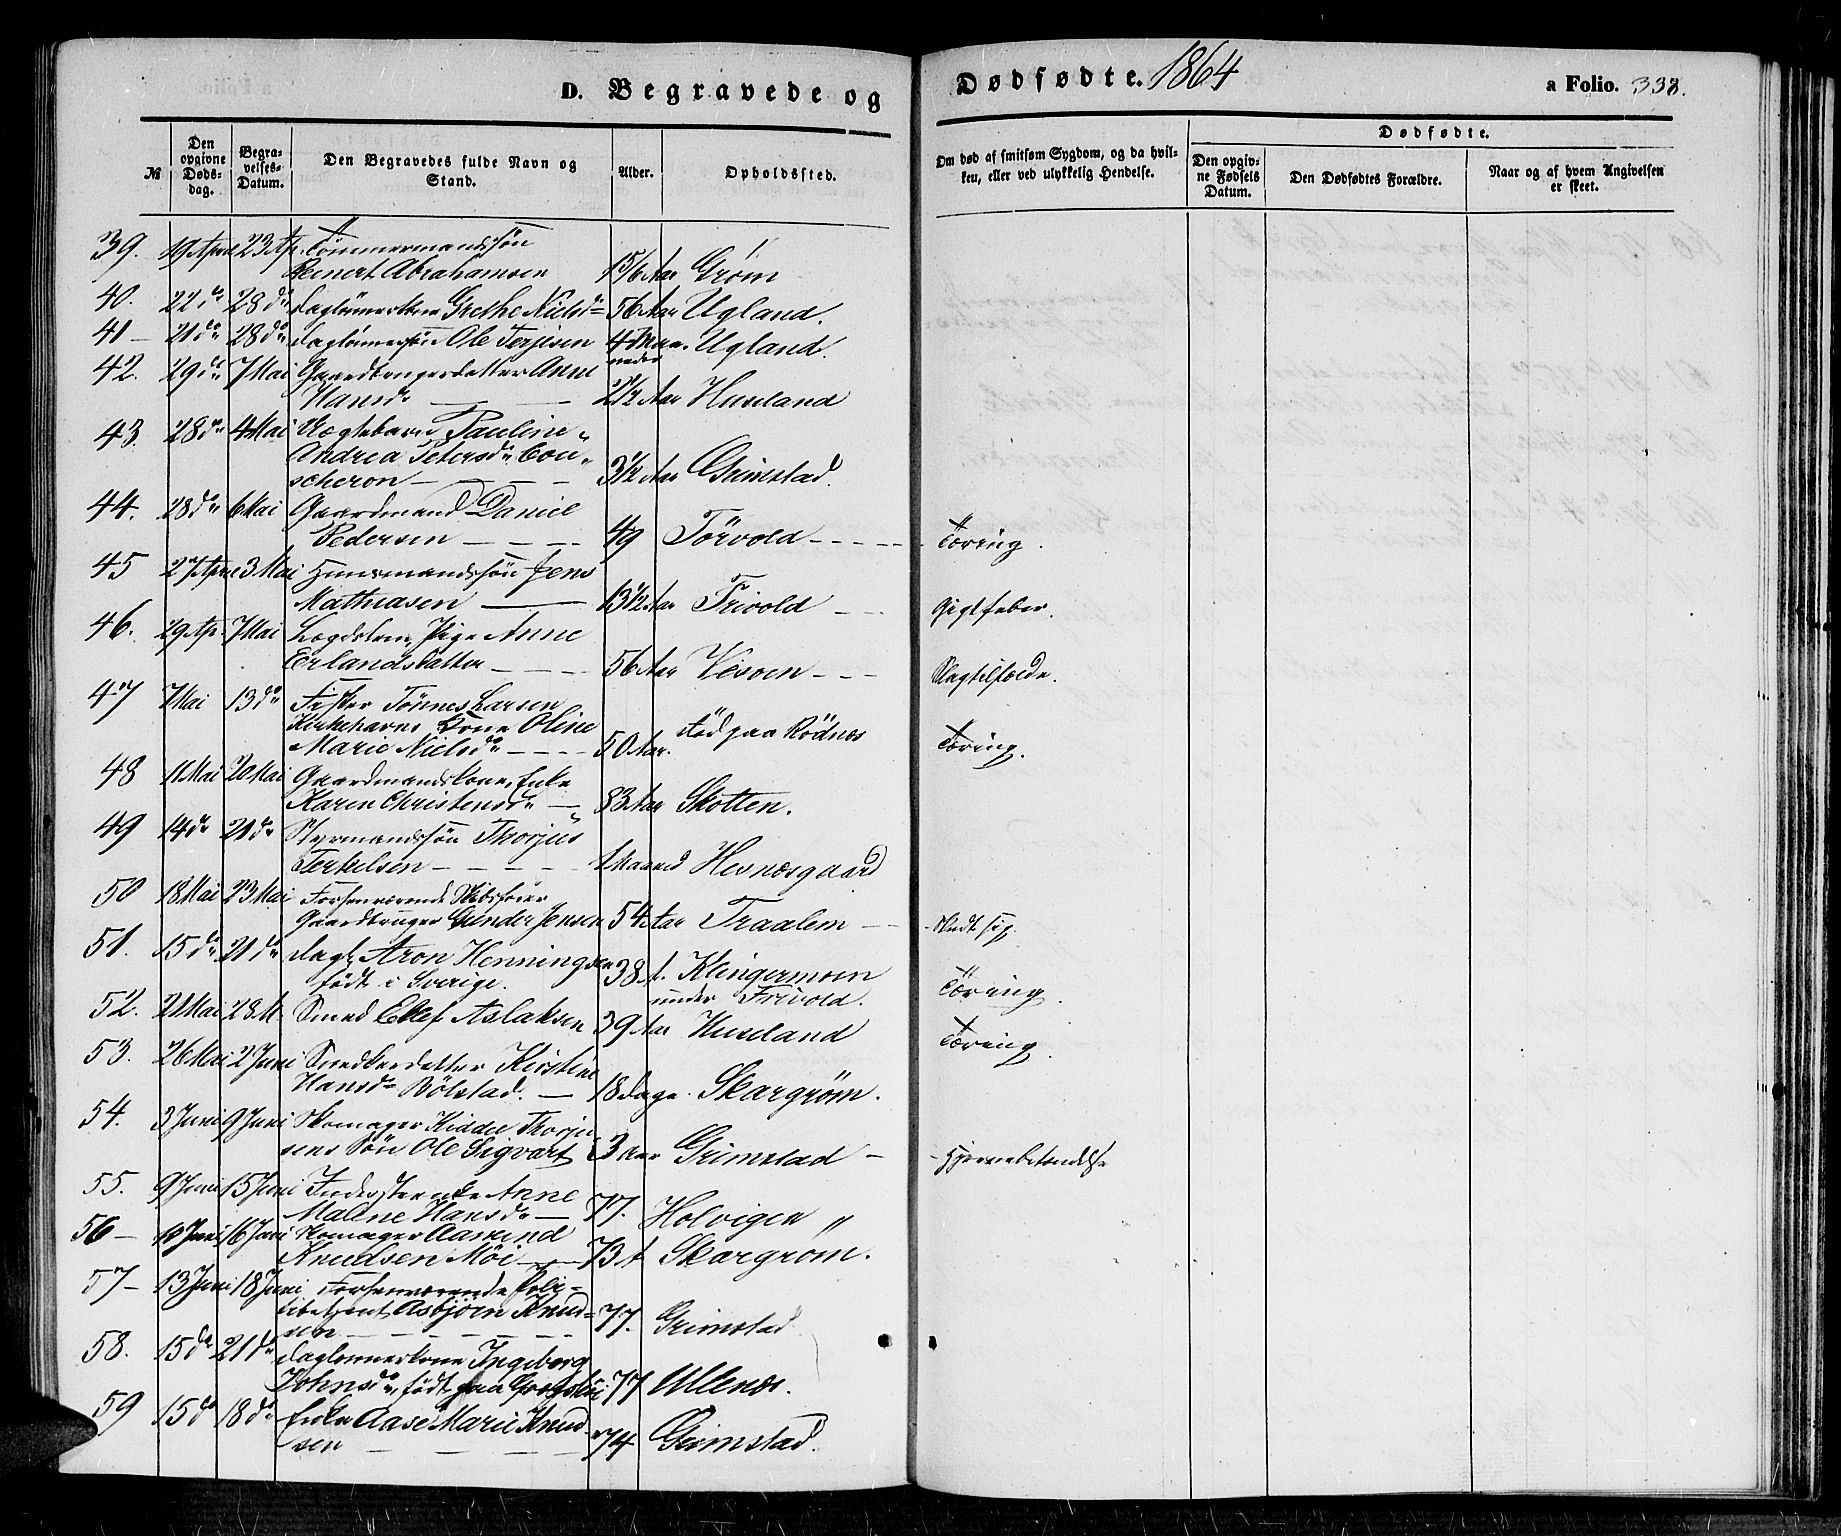 D. Begravede og Dødfødte. 1864 a Folio. 338.
№ Den opgivne Døds-dag. Begra-velses-Datum. Den Begravedes fulde Navn og Stand. Alder. Opholdssted. Om død af smitsom Sygdom, og da hvil-ken, eller ved ulykkelig Hendelse. Dødfødte. Den opgiv-ne Fødsels Datum. Den Dødfødtes Forældre. Naar og af hvem Angivelsen er skeet.
39. 19 April 23 Ap. Tömmermandssön
Reinert Abrahamsen 15/6 Aar Gröm
40. 22 do 28 do Daglönnerkone Grethe Nielsd 56 Aar Ugland.
41 – 21 do 28 do Daglönnersön Ole Terjisen 4 Maa-neder Ugland.
42. 29 do 7 Mai Gaardbrugerdatter Anne
Hansd 2 1/2 Aar Huseland
43. 28 do 4 Mai Pauline
Andrea Petersd Con-
scheron 3 1/2 Aar Grimstad.
44. 28 do 6 Mai Gaardmand Daniel
Pedersen 49 Törvold Tæring.
45 27 April 3 Mai Huusmandssön Jens
Mathiasen 13 1/2 Aar Frivold Gigtfeber.
46. 29 Ap. 7 Mai Lægdslem, Pige Anne
Erlandsdatter 56 Aar Vesöen Slagtilfælde.
47 7 Mai 13 do Fisker Tönnes Larsen
Kirkehavns Kone Oline
Marie Nielsd 50 Aar. död paa Rödnes Tæring.
48 11 Mai 20 Mai Gaardmandskone, Enke
Karen Christensd 83 Aar Skotten.
49 14 do 21 do Styrmandssön Thorjus
Terkelsen 1 Maaned Hevnesgaard
50 18 Mai 23 Mai Forhenværende Skibsfører
Gaardbruger Gunder Jensen 54 Aar Traalem Skudt sig.
51. 15 do 21 do Dagl. Aron Henningsen
födt i Sverige. 38 A. Klingermoen
under Frivold. Tæring.
52. 21 Mai 28 M. Smed Ellef Aslaksen 39 Aar Huseland Tæring.
53. 26 Mai 2 Juni Snedkerdatter Kirstine
Hansd Bölstad. 18 Dage Skargröm.
54. 3 Juni 9 Juni Skomager Kiddel Thorju
sens Sön Ole Sigvart 3 Aar Grimstad Hjernebetændelse
55. 9 Juni 15 Juni Inderstenke Anne
Maline Hansd 77. Holvigen
56 – 10 Juni 16 Juni Skomager Aasmund
Knudsen Möi 73 A Skargröm.
57 – 13 Juni 18 Juni Forhenværende Poli-
tibetjent Asbjörn Knud-
sen 77. Grimstad
58. 15 do 21 do Daglönnerkone Ingeborg
Johnsd, födt paa 77 Ullenes.
59 15 do 18 do Enke Aase Marie Knud-
sen 74 Grimstad.